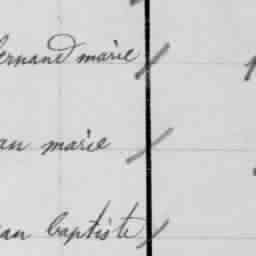 ernand marie
an marie
ean baptiste